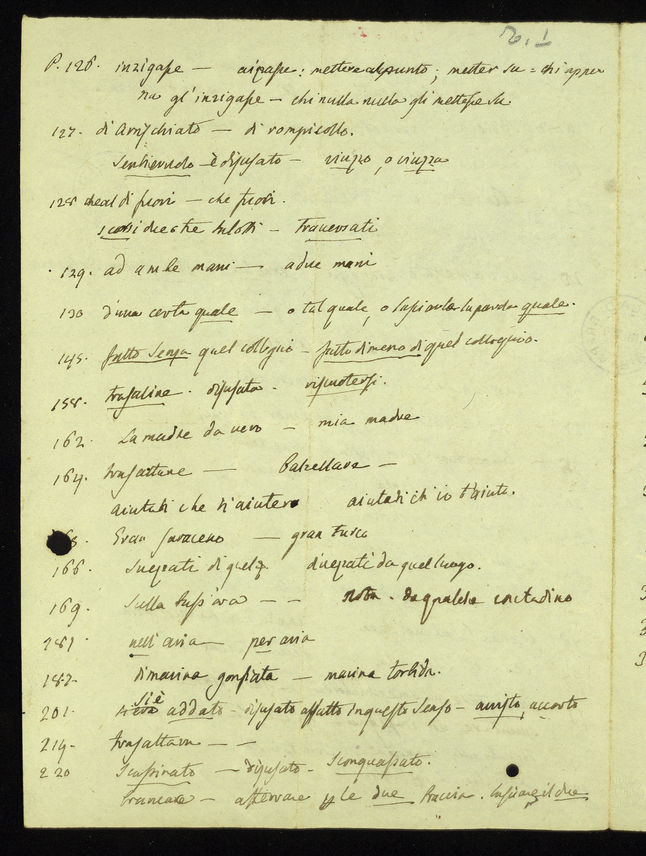 P. 126. inzigasse — aizzasse: mettere al punto; metter su = chi appe
na gl'inzigasse — chi nulla nulla gli mettesse su
127. di Arrischiato — di rompicollo.
Sentieruolo è disusato — viuzzo, o viuzza
128 di fuori — che fuori.
scorsi due o tre salotti — traversati
129. ad ambe mani — a due mani
130 d'una certa quale — o tal quale, o la parola quale.
145. fatto senza quel collegio — fatto di meno di quel collegio.
158. trasalire. disusato. riscuotersi.
162. La madre da vero — mia madre
164. — Balzellare —
aiutati che t'aiuterò aiutati ch'io t'aiuto.
Gran Saraceno — gran turco
166. di quel dal quel luogo.
169. Sulla — — Nota. da qualche contadino
181. nell'aria — per aria
182. Di marina gonfiata — marina torbida.
201. si è addato — disusato affatto in questo senso — avvisto, accorto
214. — —
220 Scassinato — disusato — Sconquassato.
brancare — afferrare le due braccia.